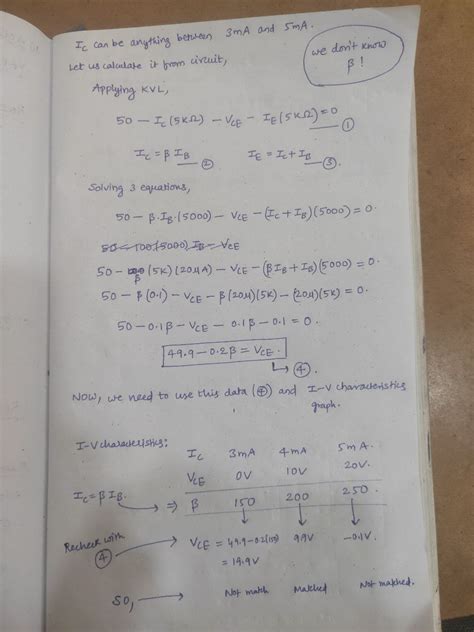 I_C can be anything between 3mA and 5mA.
Let us calculate it from circuit,
we don't know
β !
Applying KVL,
50 - I_C (5KΩ) - V_CE - I_E (5KΩ) = 0
①
I_C = β I_B ②
I_E = I_C + I_B ③.
Solving 3 equations,
50 - β.I_B.(5000) - V_CE - (I_C + I_B)(5000) = 0.
50 - 100(5000) I_B = V_CE
50 - β (5K)(20μA) - V_CE - (βI_B + I_B)(5000) = 0.
50 - β(0.1) - V_CE - β(20μ)(5K) - (20μ)(5K) = 0.
50 - 0.1β - V_CE - 0.1β - 0.1 = 0.
49.9 - 0.2β = V_CE.
④.
NOW, we need to use this data (④) and I-V characteristics
graph.
I-V characteristics:
I_C 3mA 4mA 5mA.
V_CE 0V 10V 20V.
I_C = β I_B. ⇒ β 150 200 250.
Recheck with
④
V_CE = 49.9-0.2(150) 9.9V -0.1V.
= 19.9V
SO, Not match Matched Not matched.